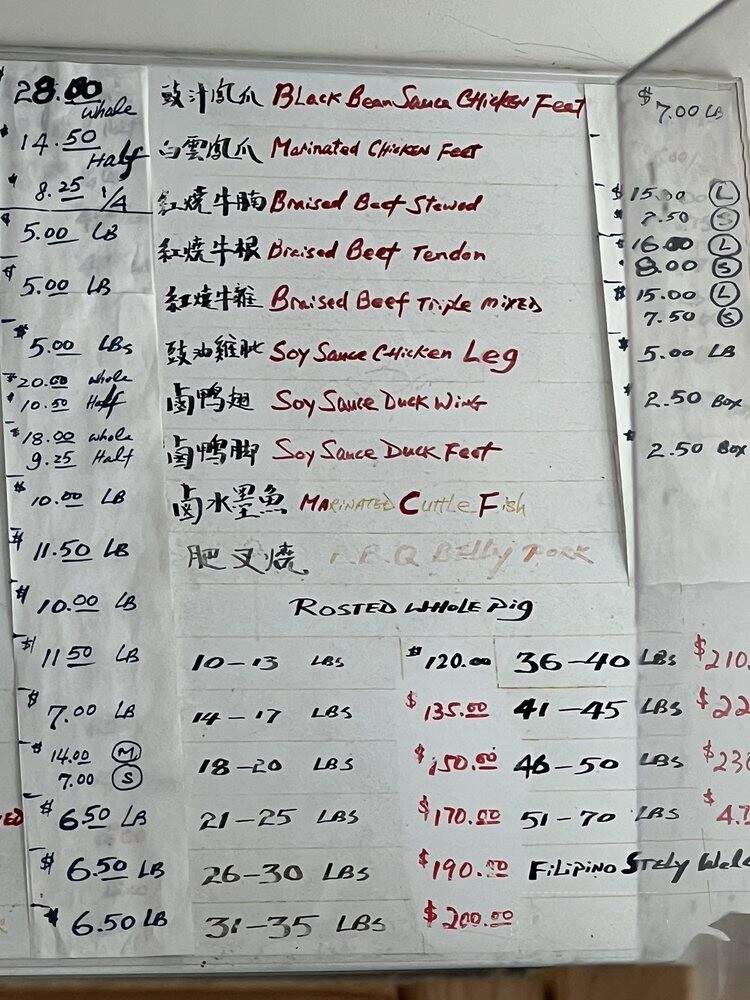 $28.00 Whole
$14.50 Half
$8.25 1/4
$5.00 LB
$5.00 LB
$5.00 LBs
$20.00 Whole
$10.50 Half
$18.00 whole
9.25 Half
$10.00 LB
$11.50 LB
$10.00 LB
$11.50 LB
$7.00 LB
$14.00 M
7.00 S
$6.50 LB
$6.50 LB
$6.50 LB
豉汁鳯爪 Black Bean Sauce Chicken Feet $7.00 LB
白雲鳯爪 Marinated Chicken Feet
紅燒牛腩 Braised Beef Stewed $15.00 L
$7.50 S
紅燒牛根 Braised Beef Tendon $16.00 L
$8.00 S
紅燒牛雜 Braised Beef Triple Mixed $15.00 L
7.50 S
豉油雞肶 Soy Sauce Chicken Leg $5.00 LB
鹵鴨翅 Soy Sauce Duck Wing $2.50 Box
鹵鴨脚 Soy Sauce Duck Feet $2.50 Box
鹵水墨魚 Marinated Cuttle Fish
肥叉燒 B.B.Q Belly Pork
Rosted Whole Pig
10-13 LBS $120.00 36-40 LBS $210.
14-17 LBS $135.00 41-45 LBS $22
18-20 LBS $150.00 46-50 LBS $230
21-25 LBS $170.00 51-70 LBS $4.7
26-30 LBS $190.00 Filipino Stely
31-35 LBS $200.00